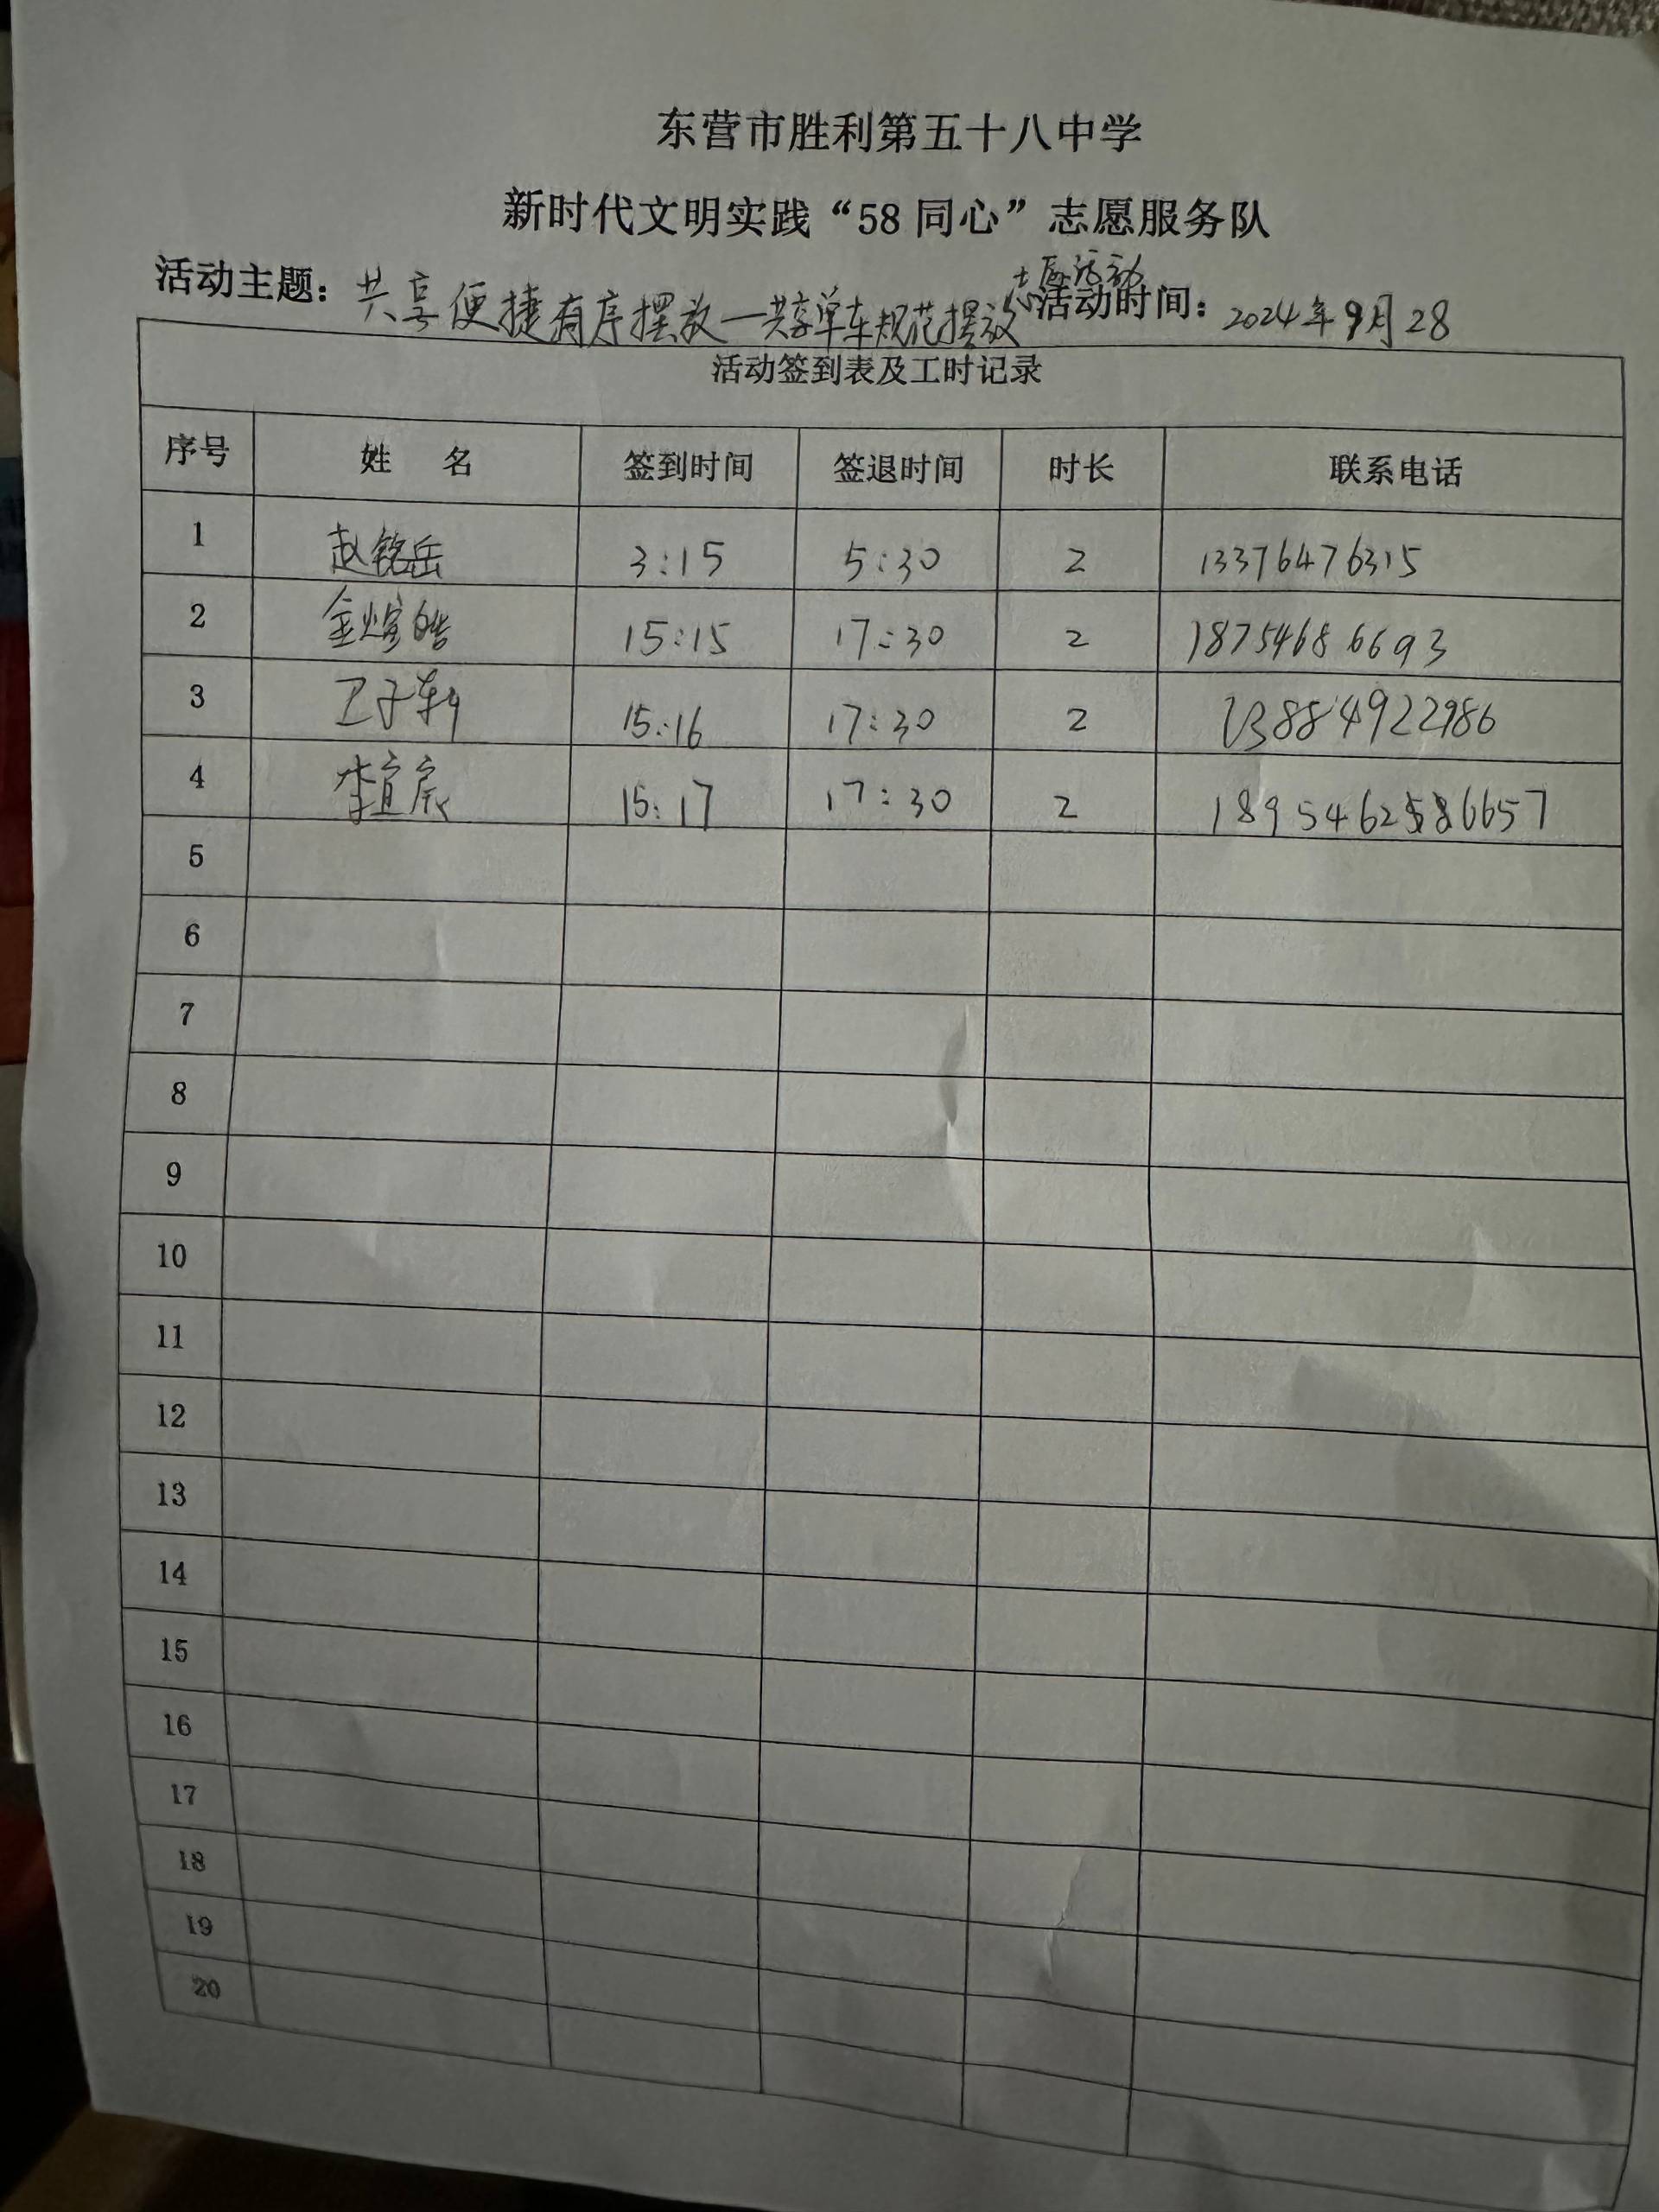 东营市胜利第五十八中学
新时代文明实践“58同心”志愿服务队
活动主题：共享便捷有序摆放—共享单车规范摆放志愿活动 活动时间：2024年9月28
活动签到表及工时记录
序号 姓 名 签到时间 签退时间 时长 联系电话
1 赵铭岳 3:15 5:30 2 13376476315
2 金煊皓 15:15 17:30 2 18754686693
3 卫子轩 15:16 17:30 2 13884922986
4 李宣宸 15:17 17:30 2
5
6
7
8
9
10
11
12
13
14
15
16
17
18
19
20